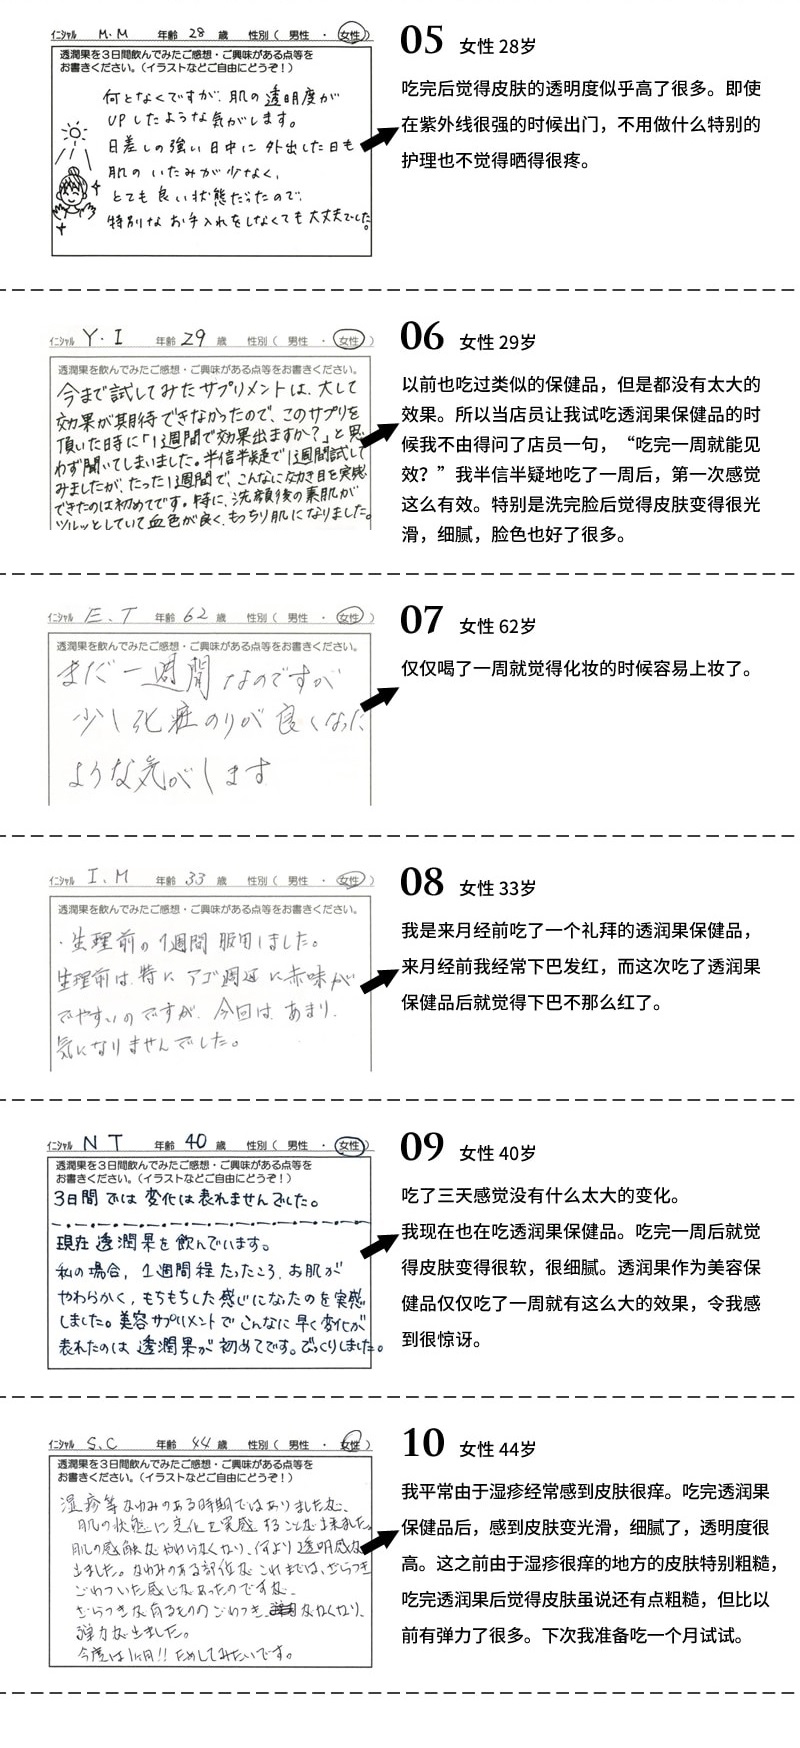 イニシャル M.M 年齢 28 歳 性別( 男性 ・ 女性 )
透潤果を3日間飲んでみたご感想・ご興味がある点等を
お書きください。(イラストなどご自由にどうぞ!)
何となくですが、肌の透明度が
UPしたような気がします。
日差しの強い日中に外出した日も
肌のいたみが少なく、
とても良い状態だったので、
特別なお手入れをしなくても大丈夫でした。
05 女性 28岁
吃完后觉得皮肤的透明度似乎高了很多。即使
在紫外线很强的时候出门，不用做什么特别的
护理也不觉得晒得很疼。
イニシャル Y.I 年齢 29 歳 性別( 男性 ・ 女性 )
透潤果を飲んでみたご感想・ご興味がある点等をお書きください。
今まで試してみたサプリメントは、大して
効果が期待できなかったので、このサプリを
頂いた時に「1週間で効果出ますか?」と思
わず聞いてしまいました。半信半疑で1週間試して
みましたが、たった1週間で、こんなに効き目を実感
できたのは初めてです。特に、洗顔後の素肌が
ツルッとしていて血色が良く、もっちり肌になりました。
06 女性 29岁
以前也吃过类似的保健品，但是都没有太大的
效果。所以当店员让我试吃透润果保健品的时
候我不由得问了店员一句，“吃完一周就能见
效？”我半信半疑地吃了一周后，第一次感觉
这么有效。特别是洗完脸后觉得皮肤变得很光
滑，细腻，脸色也好了很多。
イニシャル E.T 年齢 62 歳 性別( 男性 ・ 女性 )
透潤果を飲んでみたご感想・ご興味がある点等をお書きください。
まだ一週間なのですが
少し化粧のりが良くなった
ような気がします
07 女性 62岁
仅仅喝了一周就觉得化妆的时候容易上妆了。
イニシャル I.M 年齢 33 歳 性別( 男性 ・ 女性 )
透潤果を飲んでみたご感想・ご興味がある点等をお書きください。
・生理前の1週間服用しました。
生理前は、特にアゴ周辺に赤味が
でやすいのですが、今回は、あまり、
気になりませんでした。
08 女性 33岁
我是来月经前吃了一个礼拜的透润果保健品，
来月经前我经常下巴发红，而这次吃了透润果
保健品后就觉得下巴不那么红了。
イニシャル N T 年齢 40 歳 性別( 男性 ・ 女性 )
透潤果を3日間飲んでみたご感想・ご興味がある点等を
お書きください。(イラストなどご自由にどうぞ!)
3日間では変化は表れませんでした。
現在透潤果を飲んでいます。
私の場合、1週間程たったころ、お肌が
やわらかく、もちもちした感じになったのを実感
しました。美容サプリメントでこんなに早く変化が
表れたのは透潤果が初めてです。びっくりしました。
09 女性 40岁
吃了三天感觉没有什么太大的变化。
我现在也在吃透润果保健品。吃完一周后就觉
得皮肤变得很软，很细腻。透润果作为美容保
健品仅仅吃了一周就有这么大的效果，令我感
到很惊讶。
イニシャル S.C 年齢 44 歳 性別( 男性 ・ 女性 )
透潤果を3日間飲んでみたご感想・ご興味がある点等を
お書きください。(イラストなどご自由にどうぞ!)
湿疹等かゆみのある時期ではありましたが、
肌の状態に変化を実感することが出来ました。
肌の感触がやわらかくなり、何より透明感が
出ました。かゆみのある部位がこれまでは、ざらつき
ごわついた感じがあったのですが、
ざらつきは有るもののごわつきがなくなり、
弾力が出ました。
今度は1ヶ月!!ためしてみたいです。
10 女性 44岁
我平常由于湿疹经常感到皮肤很痒。吃完透润果
保健品后，感到皮肤变光滑，细腻了，透明度很
高。这之前由于湿疹很痒的地方的皮肤特别粗糙，
吃完透润果后觉得皮肤虽说还有点粗糙，但比以
前有弹力了很多。下次我准备吃一个月试试。